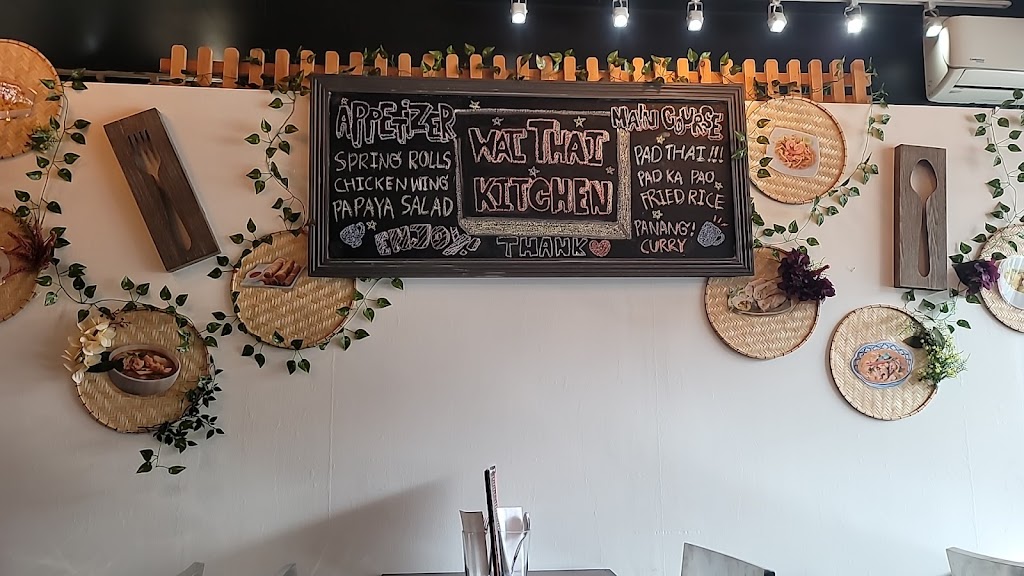 APPETIZER
SPRING ROLLS
CHICKEN WING
PAPAYA SALAD
ENJOY!!
WAI THAI
KITCHEN
THANK
MAIN COURSE
PAD THAI !!!
PAD KA PAO
FRIED RICE
PANANG!
CURRY